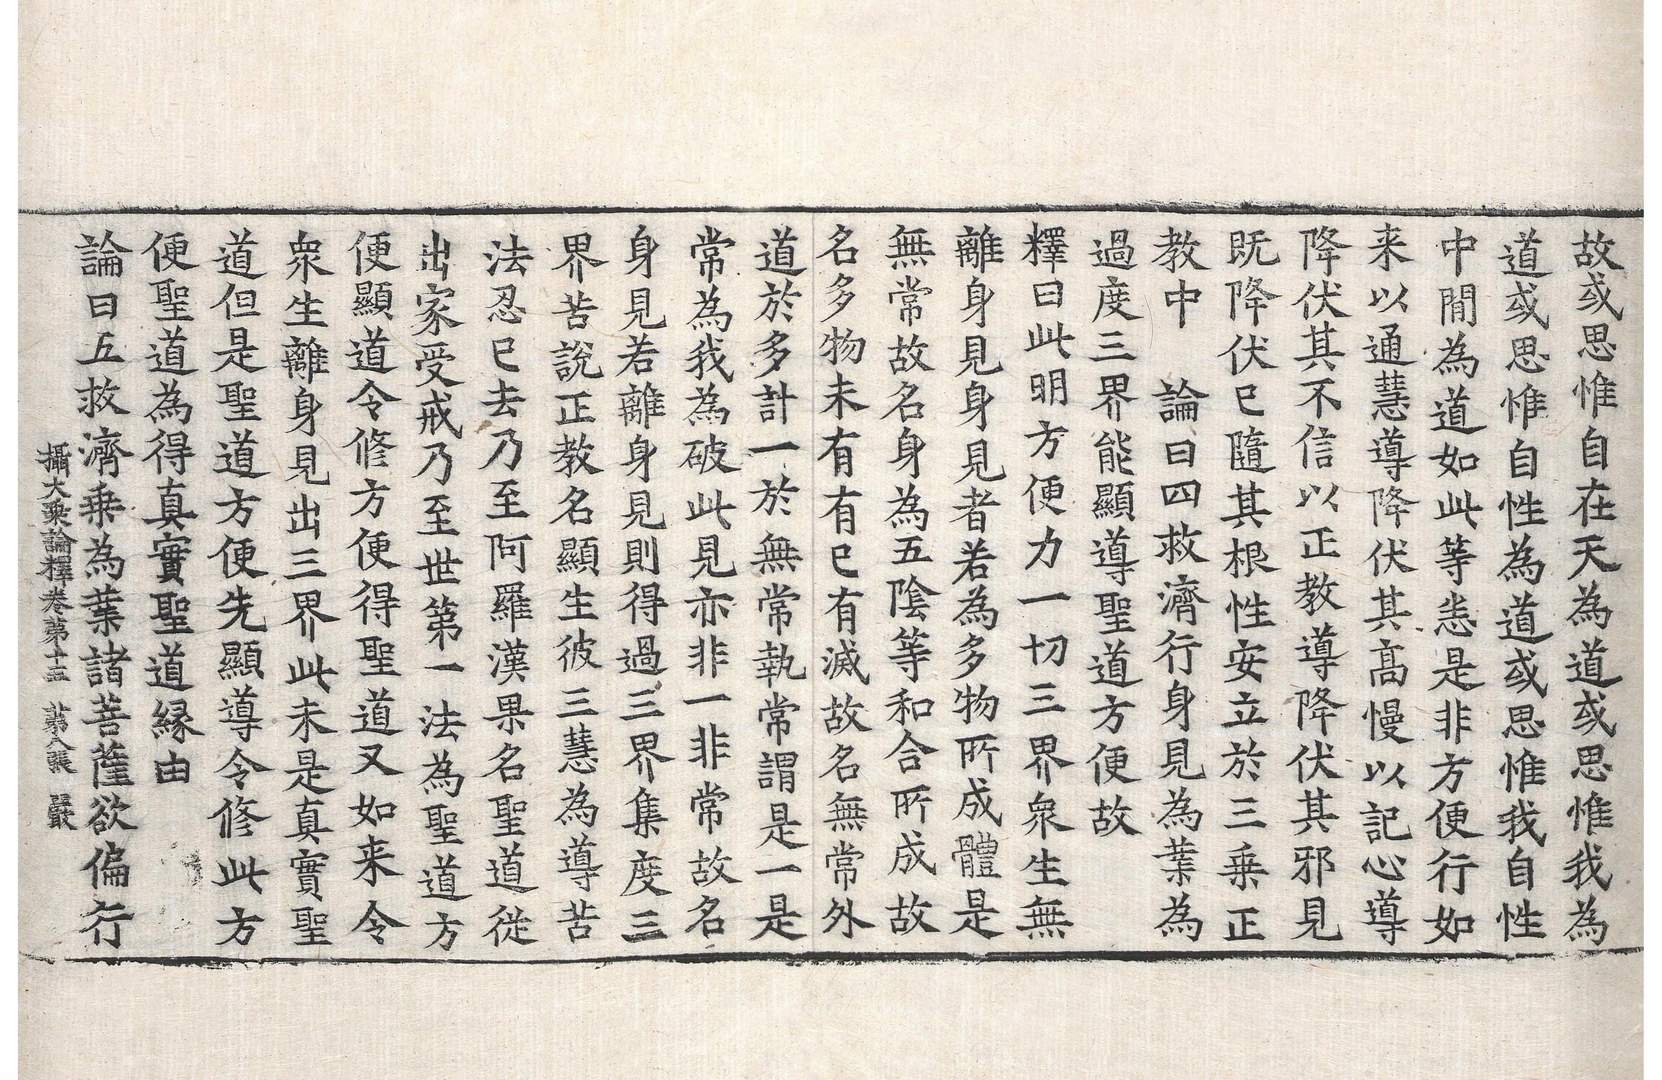 故或思惟自在天為道或思惟我為
道或思惟自性為道或思惟我自性
中間為道如此等恙是非方便行如
来以通慧導降伏其高慢以記心導
降伏其不信以正教導降伏其邪見
既降伏已隨其根性安立於三乗正
教中　論曰四救濟行身見為業為
過度三界能顯導聖道方便故
釋曰此明方便力一切三界衆生無
離身見身見者若為多物所成體是
無常故名身為五陰等和合所成故
名多物未有有已有滅故名無常外
道於多計一於無常執常謂是一是
常為我為破此見亦非一非常故名
身見若離身見則得過三界集度三
界苦說正教名顯生彼三慧為導苦
法忍已去乃至阿羅漢果名聖道従
出家受戒乃至世第一法為聖道方
便顯道令修方便得聖道又如来令
衆生離身見出三界此未是真實聖
道但是聖道方便先顯導令修此方
便聖道為得真實聖道縁由
論曰五救濟乗為業諸菩薩欲偏行
攝大乘論釋卷第十五　第八張　嚴